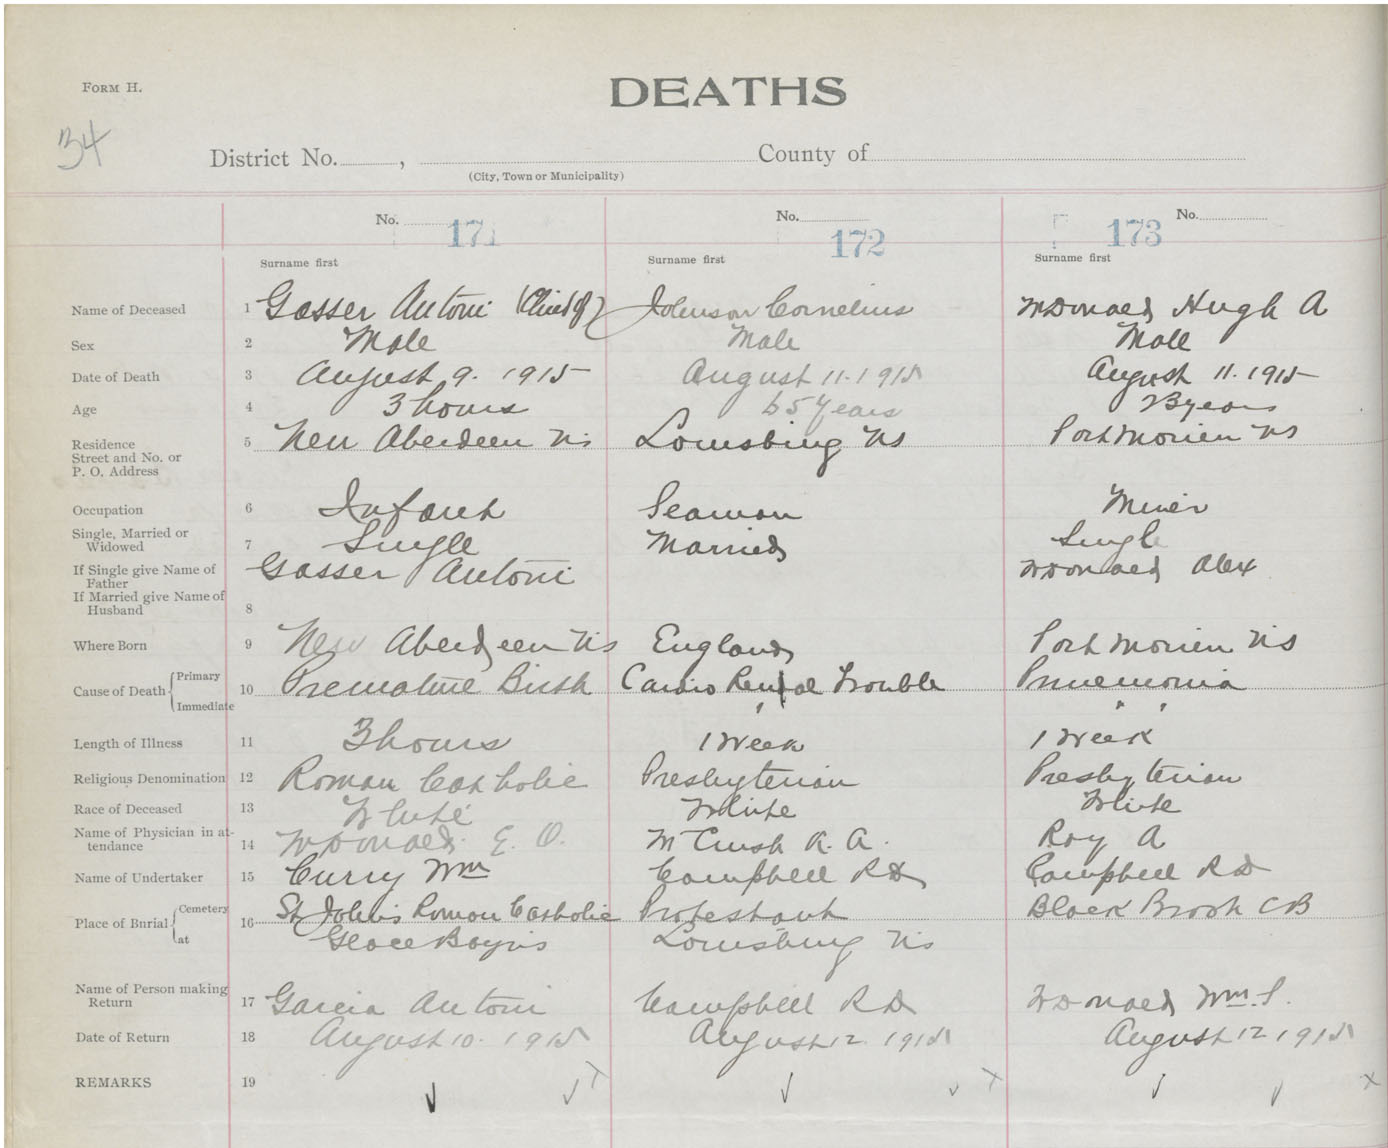 FORM H.
DEATHS
34
District No. , County of
(City, Town or Municipality)
No. 171 No. 172 No. 173
Surname first Surname first Surname first
Name of Deceased 1 Gasser Antoni (Child of) Johnson Cornelius McDonald Hugh A
Sex 2 Male Male Male
Date of Death 3 August 9. 1915 August 11. 1915 August 11. 1915
Age 4 3 hours 65 years 23 years
Residence
Street and No. or
P. O. Address
5 New Aberdeen NS Louisburg NS Port Morien NS
Occupation 6 Infant Seaman Miner
Single, Married or
Widowed
7 Single Married Single
If Single give Name of
Father
Gasser Antoni McDonald Alex
If Married give Name of
Husband
8
Where Born 9 New Aberdeen NS England Port Morien NS
Cause of Death Primary
Immediate
10 Premature Birth Cardio Renal Trouble Pneumonia
" " "
Length of Illness 11 3 hours 1 Week 1 Week
Religious Denomination 12 Roman Catholic Presbyterian Presbyterian
Race of Deceased 13 White White White
Name of Physician in at-
tendance
14 McDonald E. O. McCuish A. A. Roy A
Name of Undertaker 15 Curry Wm Campbell RD Campbell RD
Place of Burial Cemetery
at
16 St John's Roman Catholic Protestant Black Brook CB
Glace Bay NS Louisburg NS
Name of Person making
Return
17 Garcia Antoni Campbell RD McDonald Wm. S.
Date of Return 18 August 10. 1915 August 12. 1915 August 12 1915
REMARKS 19